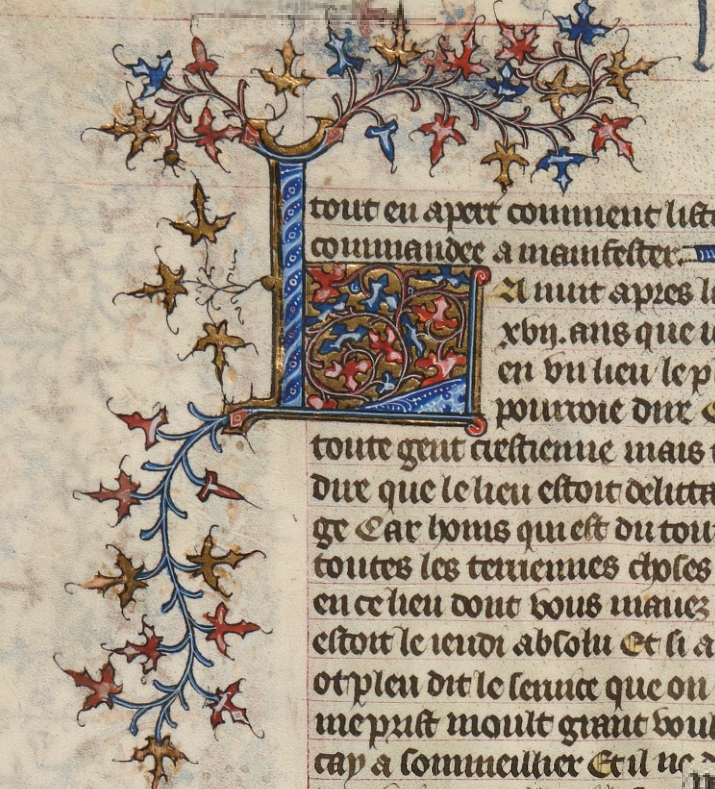 tout en apert comment list
commandee a manifester.
LA nuit apres l
xvij. ans que
en vn lieu le p
pourroie dire
toute gent crestienne mais
dire que le lieu estoit delitta
ge Car homs qui est du tou
toutes les terriennes choses
en ce lieu dont vous mauez
estoit le ieudi absolu Et si a
ot pleu dit le seruice que on
me prist moult grant vou
cay a sommeillier Et il ne